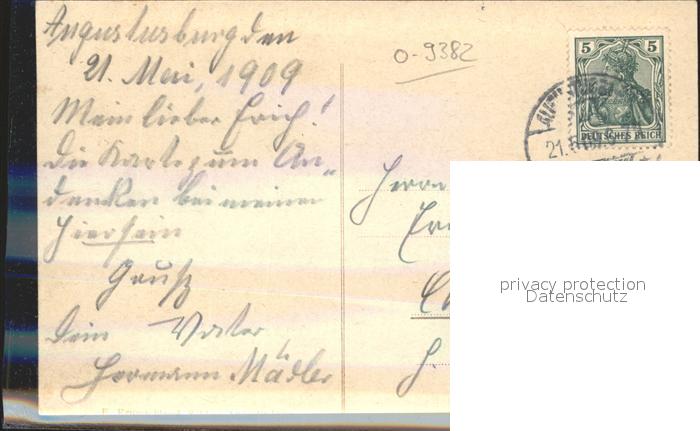 Augustusburg den
21. Mai, 1909
Mein lieber Erich!
Die Karte zum An„
denken bei meinem
Hiersein
Gruß
Dein Vater
Hermann Mädler
O-9382
5 5
DEUTSCHES REICH
21.5
Herrn
privacy protection
Datenschutz